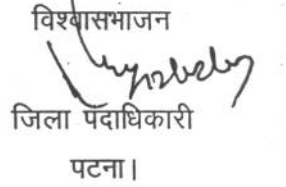 विश्वासभाजन
जिला पदाधिकारी
पटना।